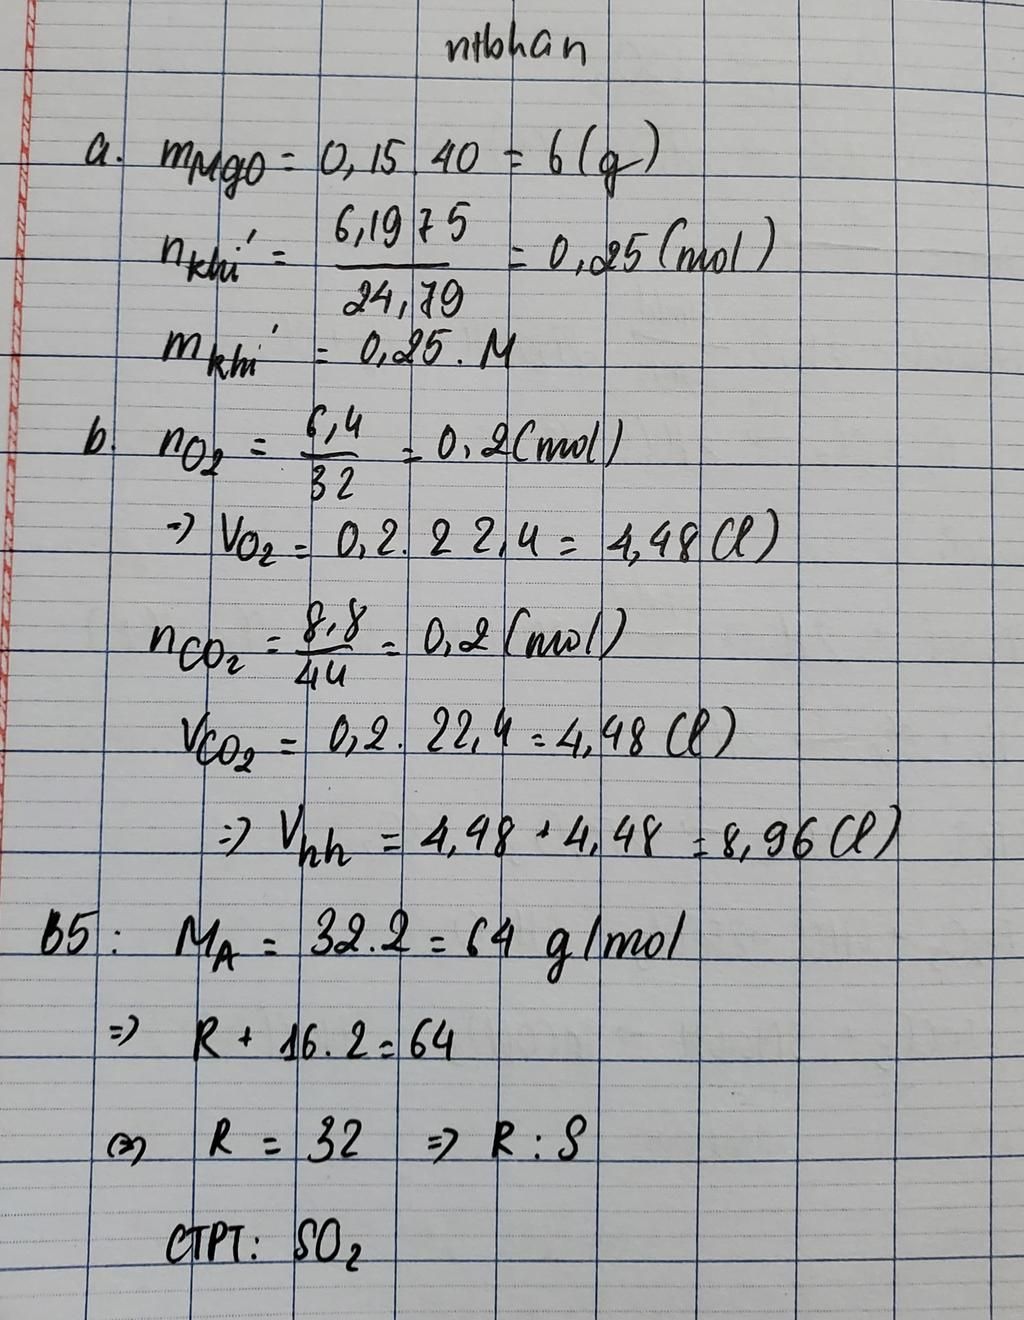 ntbhan
a. mMgO = 0,15.40 = 6(g)
nkhí = 6,1975/24,79 = 0,25(mol)
mkhí = 0,25.M
b. nO2 = 6,4/32 = 0,2(mol)
=> VO2 = 0,2.22,4 = 4,48(l)
nCO2 = 8,8/44 = 0,2(mol)
VCO2 = 0,2.22,4 = 4,48(l)
=> Vhh = 4,48+4,48 = 8,96(l)
B5: MA = 32.2 = 64 g/mol
=> R + 16.2 = 64
(=) R = 32 => R: S
CTPT: SO2